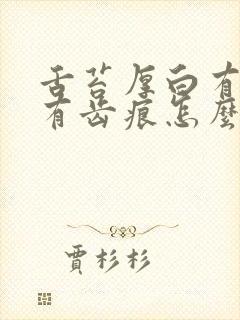 舌苔厚白有
有齿痕怎麼
賈杉杉